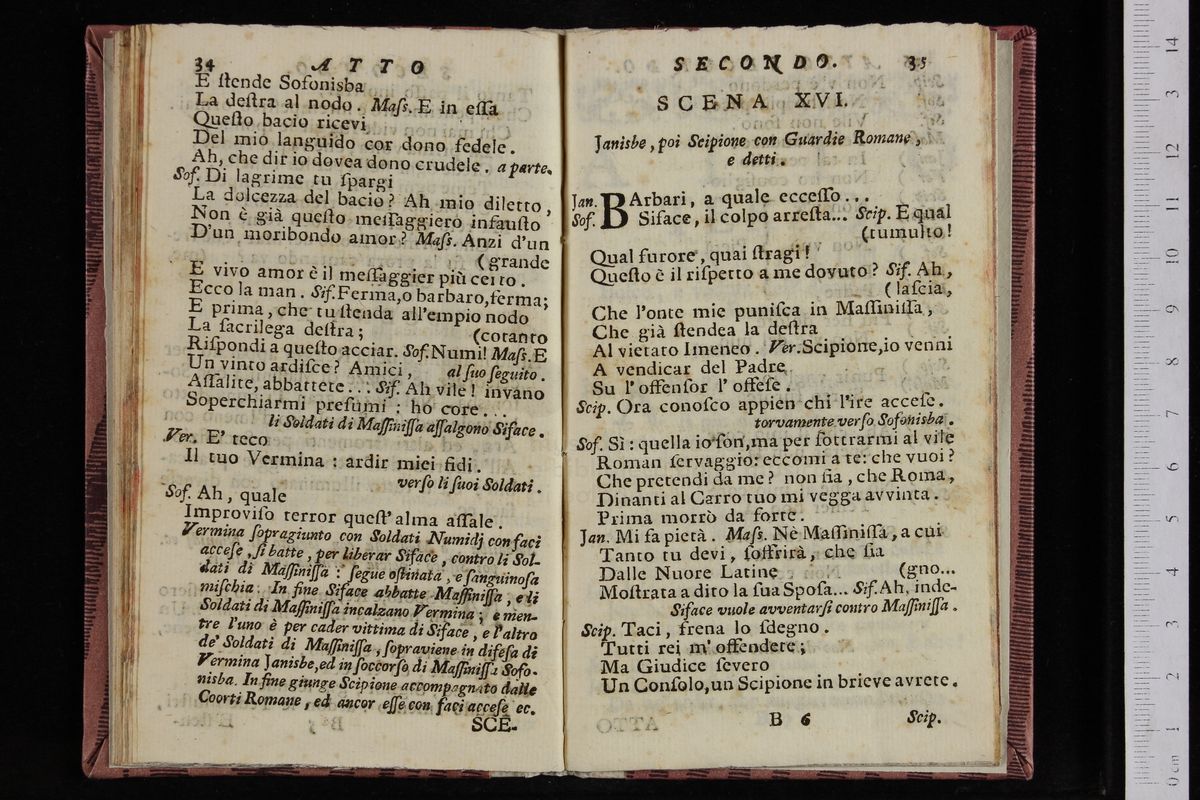 34 ATTO
E ſtende Sofonisba
La deſtra al nodo. Maſs. E in eſſa
Queſto bacio ricevi
Del mio languido cor dono fedele.
Ah, che dir io dovea dono crudele. a parte.
Sof. Di lagrime tu ſpargi
La dolcezza del bacio? Ah mio diletto,
Non è già queſto meſſaggiero infauſto
D'un moribondo amor? Maſs. Anzi d'un
(grande
E vivo amor è il meſſaggier più certo.
Ecco la man. Sif. Ferma, o barbaro, ferma;
E prima, che tu ſtenda all'empio nodo
La ſacrilega deſtra; (cotanto
Riſpondi a queſto acciar. Sof. Numi! Maſs. E
Un vinto ardiſce? Amici, al ſuo ſeguito.
Aſſalite, abbattete... Sif. Ah vile! invano
Soperchiarmi preſumi: ho core...
li Soldati di Maſſiniſſa aſſalgono Siface.
Ver. E' teco
Il tuo Vermina: ardir miei fidi.
verſo li ſuoi Soldati.
Sof. Ah, quale
Improviſo terror queſt'alma aſſale.
Vermina ſopragiunto con Soldati Numidj con faci
acceſe, ſi batte, per liberar Siface, contro li Sol-
dati di Maſſiniſſa: ſegue oſtinata, e ſanguinoſa
miſchia: In fine Siface abbatte Maſſiniſſa, e li
Soldati di Maſſiniſſa incalzano Vermina; e men-
tre l'uno è per cader vittima di Siface, e l'altro
de' Soldati di Maſſiniſſa, ſopraviene in difeſa di
Vermina Janisbe, ed in ſoccorſo di Maſſiniſſa Sofo-
nisba. In fine giunge Scipione accompagnato dalle
Coorti Romane, ed ancor eſſe con faci acceſe ec.
SCE-
SECONDO. 35
SCENA XVI.
Janisbe, poi Scipione con Guardie Romane,
e detti.
Jan. BArbari, a quale ecceſſo...
Sof. Siface, il colpo arreſta... Scip. E qual
(tumulto!
Qual furore, quai ſtragi!
Queſto è il riſpetto a me dovuto? Sif. Ah,
(laſcia,
Che l'onte mie puniſca in Maſſiniſſa,
Che già ſtendea la deſtra
Al vietato Imeneo. Ver. Scipione, io venni
A vendicar del Padre
Su l'offenſor l'offeſe.
Scip. Ora conoſco appien chi l'ire acceſe.
torvamente verſo Sofonisba.
Sof. Sì: quella io ſon, ma per ſottrarmi al vile
Roman ſervaggio: eccomi a te: che vuoi?
Che pretendi da me? non ſia, che Roma,
Dinanti al Carro tuo mi vegga avvinta.
Prima morrò da forte.
Jan. Mi fa pietà. Maſs. Nè Maſſiniſſa, a cui
Tanto tu devi, ſoffrirà, che ſia
Dalle Nuore Latine (gno...
Moſtrata a dito la ſua Spoſa... Sif. Ah, inde-
Siface vuole avventarſi contro Maſſiniſſa.
Scip. Taci, frena lo ſdegno.
Tutti rei m'offendete;
Ma Giudice ſevero
Un Conſolo, un Scipione in brieve avrete.
B 6 Scip.
14
13
12
11
10
9
8
7
6
5
4
3
2
1
0 cm